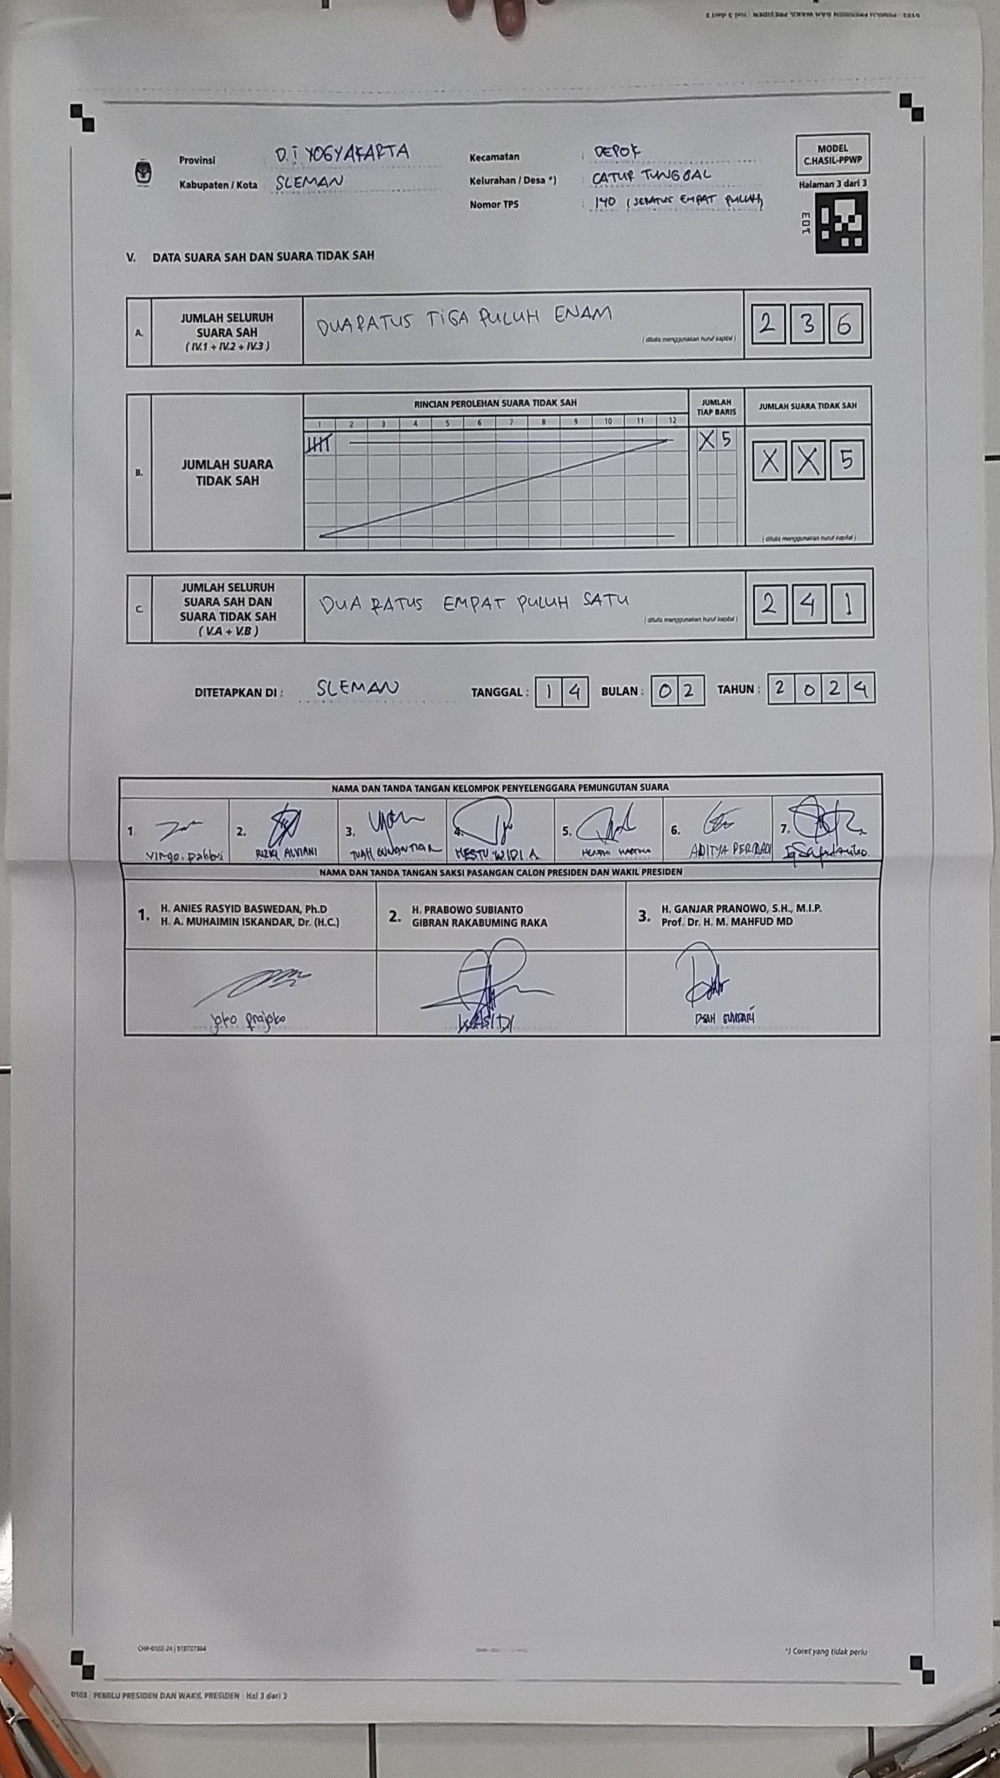 0103 - PEMILU PRESIDEN DAN WAKIL PRESIDEN - Hal 2 dari 3
Provinsi D.I YOGYAKARTA
Kabupaten / Kota SLEMAN
Kecamatan : DEPOK
Kelurahan / Desa *) : CATUR TUNGGAL
Nomor TPS : 140 (SERATUS EMPAT PULUH)
MODEL
C.HASIL-PPWP
Halaman 3 dari 3
V. DATA SUARA SAH DAN SUARA TIDAK SAH
A. JUMLAH SELURUH SUARA SAH ( IV.1 + IV.2 + IV.3 ) DUA RATUS TIGA PULUH ENAM ( ditulis menggunakan huruf kapital ) 2 3 6
RINCIAN PEROLEHAN SUARA TIDAK SAH JUMLAH TIAP BARIS JUMLAH SUARA TIDAK SAH
1 2 3 4 5 6 7 8 9 10 11 12
B. JUMLAH SUARA TIDAK SAH X 5 X X 5
( ditulis menggunakan huruf kapital )
C. JUMLAH SELURUH SUARA SAH DAN SUARA TIDAK SAH ( V.A + V.B ) DUA RATUS EMPAT PULUH SATU ( ditulis menggunakan huruf kapital ) 2 4 1
DITETAPKAN DI : SLEMAN TANGGAL : 1 4 BULAN : 0 2 TAHUN : 2 0 2 4
NAMA DAN TANDA TANGAN KELOMPOK PENYELENGGARA PEMUNGUTAN SUARA
1. 2. 3. 4. 5. 6. 7.
RIZKI ALVIANI HESTU WIDI A ADITYA
NAMA DAN TANDA TANGAN SAKSI PASANGAN CALON PRESIDEN DAN WAKIL PRESIDEN
1. H. ANIES RASYID BASWEDAN, Ph.D
H. A. MUHAIMIN ISKANDAR, Dr. (H.C.)
2. H. PRABOWO SUBIANTO
GIBRAN RAKABUMING RAKA
3. H. GANJAR PRANOWO, S.H., M.I.P.
Prof. Dr. H. M. MAHFUD MD
joko prajoko
WASIDI
*) Coret yang tidak perlu
0103 - PEMILU PRESIDEN DAN WAKIL PRESIDEN - Hal 3 dari 3